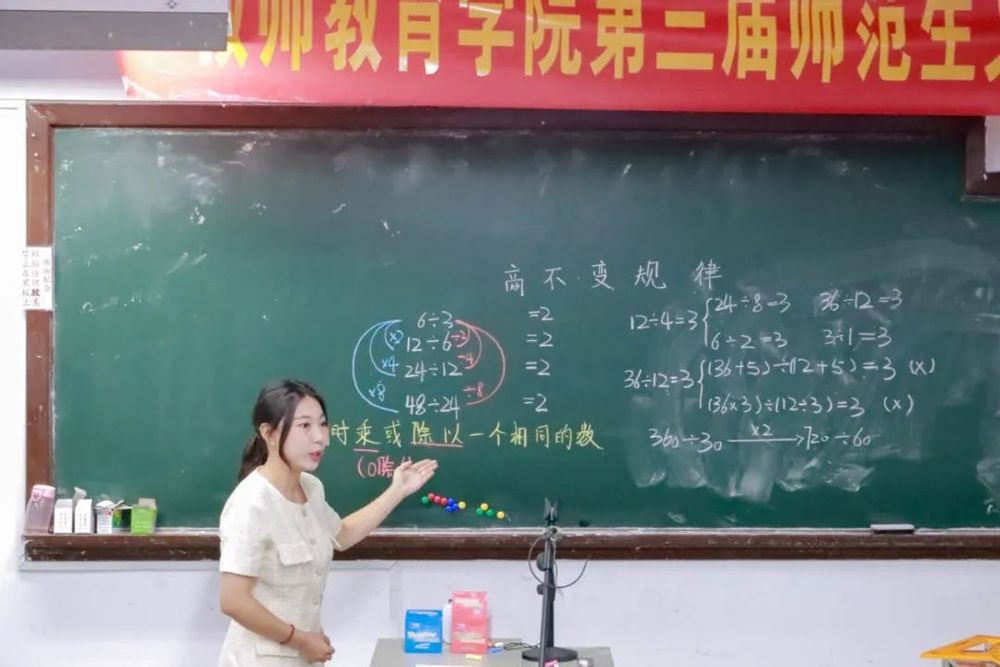 教师教育学院第三届师范生
商不变规律
6÷3 =2
×2 12÷6 ÷2 =2
×4 24÷12 ÷4 =2
×8 48÷24 ÷8 =2
时乘或除以一个相同的数
(0除
12÷4=3
24÷8=3 36÷12=3
6÷2=3 3÷1=3
36÷12=3
(36+5)÷(12+5)=3 (×)
(36×3)÷(12÷3)=3 (×)
360÷30 ×2 720÷60